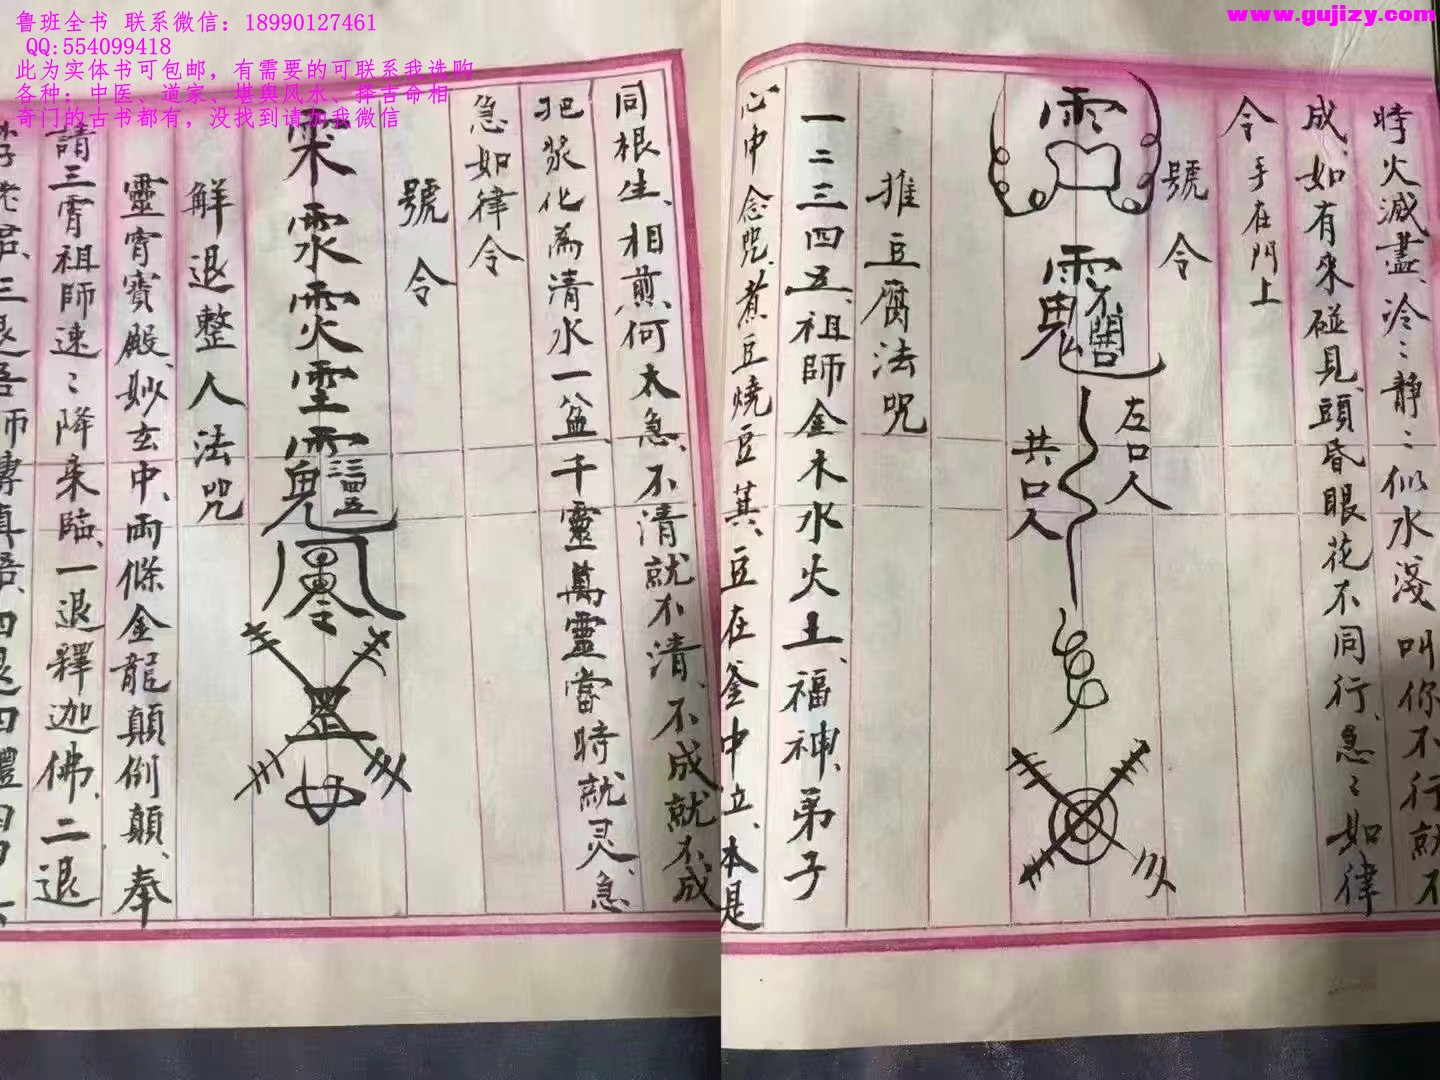 鲁班全书 联系微信：18990127461
QQ:554099418
此为实体书可包邮，有需要的可联系我选购
各种：中医、道家、堪舆风水、择吉命相
奇门的古书都有，没找到请加我微信
www.gujizy.com
時火滅盡、冷〻靜〻似水淺叫你不行就不
成、如有來碰見、頭昏眼花不同行、急〻如律
令 手在門上
號令
左口人
共口人
推豆腐法咒
一二三四五、祖師金木水火土、福神、弟子
心中念咒、煮豆燒豆萁、豆在釜中立、本是
同根生、相煎何太急、不清就不清、不成就不成
把漿化為清水一盆、千靈萬靈當時就灵、急
急如律令
號令
解退整人法咒
靈宵寶殿、妙玄中、兩條金龍顛倒顛、奉
請三霄祖師速〻降来臨、一退釋迦佛、二退
李老君、三退吾師傳真語、四退四禮